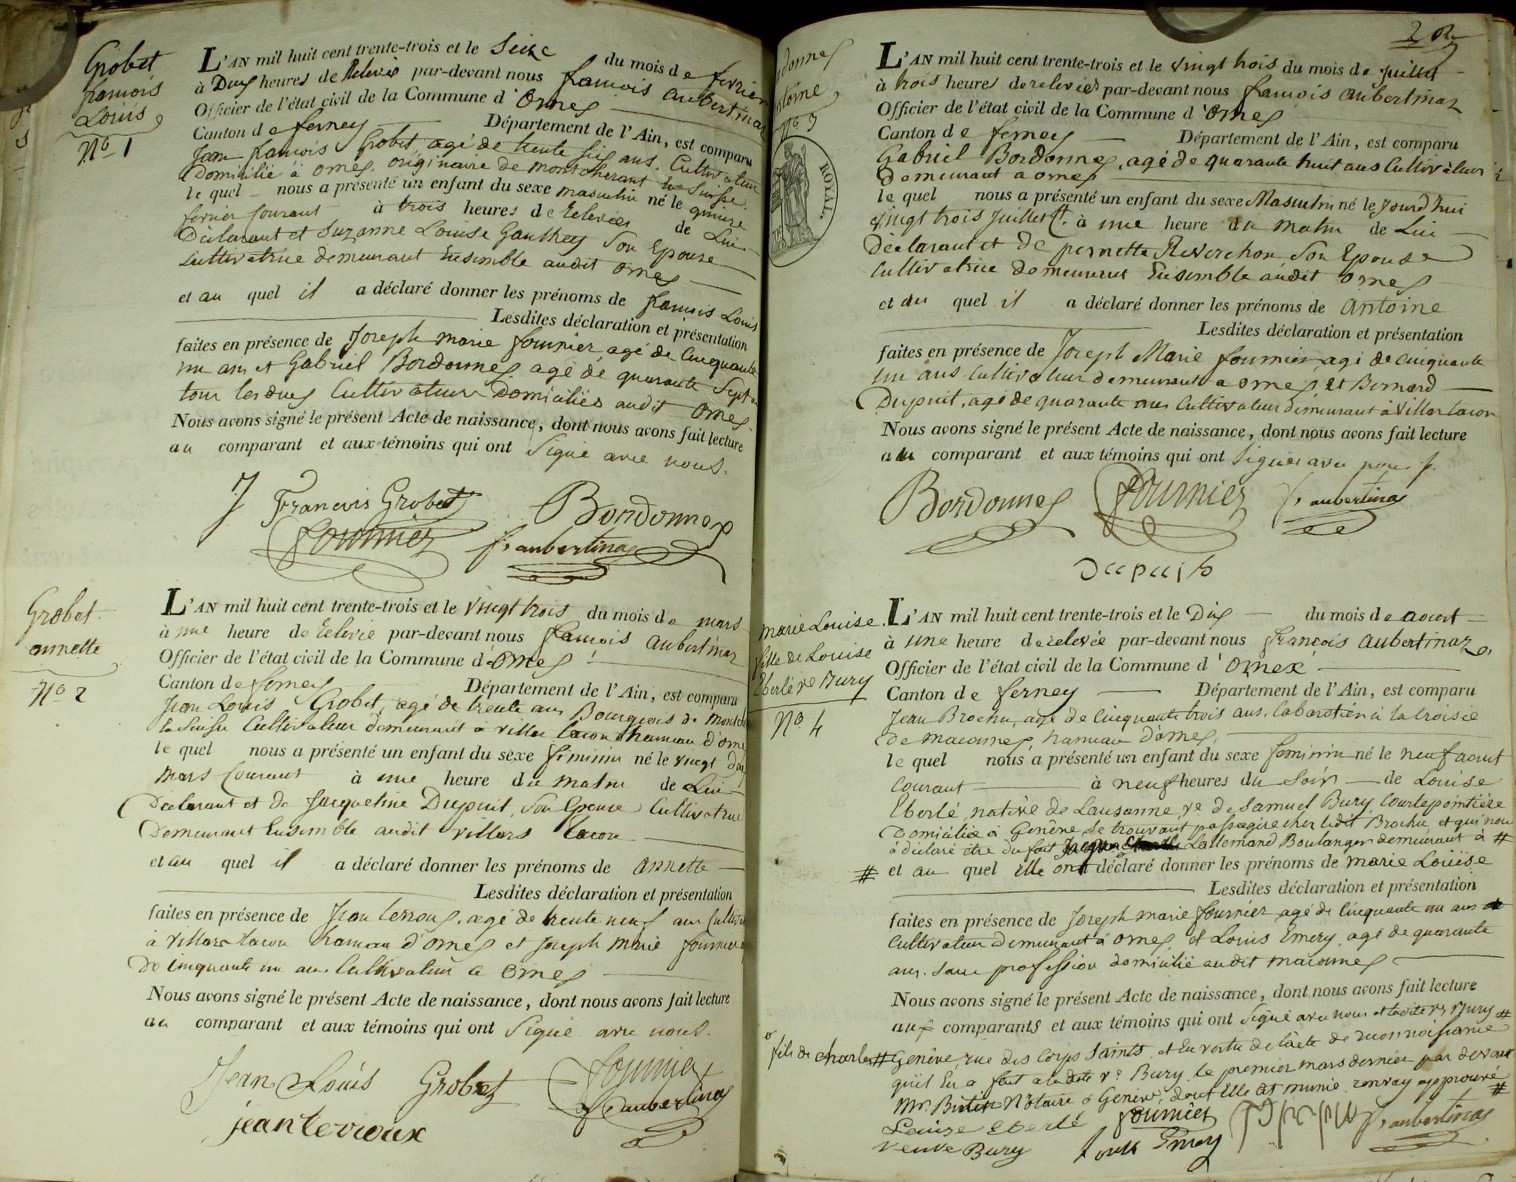 Grobet
françois
Louis
No 1
L'AN mil huit cent trente-trois et le Seize du mois de fevrier
à Deux heures de Relevée par-devant nous françois aubertinaz
Officier de l'état civil de la Commune d'Ornex
Canton de ferney Département de l'Ain, est comparu
Jean françois Grobet, agé de trente six ans, Cultivateur
domicilié à ornex originaire de montcherant en Suisse
le quel nous a présenté un enfant du sexe masculin né le quinze
fevrier courant à trois heures de Relevée de Lui
Déclarant et Suzanne Louise Gauthey Son Epouse
Cultivatrice demeurant Ensemble audit ornex
et au quel il a déclaré donner les prénoms de françois Louis
Lesdites déclaration et présentation
faites en présence de Joseph marie fournier, agé de Cinquante
un ans et Gabriel Bordonnex, agé de quarante Sept ans
tous les deux Cultivateurs domiciliés audit Ornex.
Nous avons signé le présent Acte de naissance, dont nous avons fait lecture
au comparant et aux témoins qui ont Signé avec nous.
J François Grobet Bordonnex
fournier f. aubertinaz
Grobet
annette
No 2
L'AN mil huit cent trente-trois et le vingt trois du mois de mars
à une heure de Relevée par-devant nous françois aubertinaz
Officier de l'état civil de la Commune d'ornex
Canton de ferney Département de l'Ain, est comparu
Jean Louis Grobet, agé de trente ans Bourgeois de
la Suisse Cultivateur demeurant à villars tacon hameau d'ornex
le quel nous a présenté un enfant du sexe féminin né le vingt deux
mars Courant à une heure du matin de Lui
Déclarant et de Jacqueline Dupuit, Son Epouse Cultivatrice
Demeurant Ensemble audit villars tacon
et au quel il a déclaré donner les prénoms de annette
Lesdites déclaration et présentation
faites en présence de Jean terroux, agé de trente neuf ans Cultiva
à villars tacon hameau d'ornex et Joseph marie fournier
De cinquante un ans Cultivateur à ornex
Nous avons signé le présent Acte de naissance, dont nous avons fait lecture
au comparant et aux témoins qui ont Signé avec nous.
Jean Louis Grobet fournier
jean terroux f. aubertinaz
2
Bordonnex
antoine
No 3
ROYAL
L'AN mil huit cent trente-trois et le vingt trois du mois de juillet
à trois heures de relevée par-devant nous françois aubertinaz
Officier de l'état civil de la Commune d'ornex
Canton de ferney Département de l'Ain, est comparu
Gabriel Bordonnex, agé de quarante huit ans Cultivateur
Demeurant a ornex
le quel nous a présenté un enfant du sexe Masculin né le jourd'hui
vingt trois Juillet à une heure du matin de Lui
Déclarant et de pernette Reverchon, Son Epouse
Cultivatrice demeurant Ensemble audit ornex
et au quel il a déclaré donner les prénoms de antoine
Lesdites déclaration et présentation
faites en présence de Joseph Marie fournier agé de Cinquante
un ans Cultivateur demeurant a ornex, et Bernard
Dupuit, agé de quarante ans Cultivateur demeurant à villars tacon
Nous avons signé le présent Acte de naissance, dont nous avons fait lecture
au comparant et aux témoins qui ont Signé avec nous
Bordonnex fournier f. aubertinaz
Dupuit
Marie Louise
fille de Louise
Eberlé ve Bury
No 4
L'AN mil huit cent trente-trois et le Dix du mois de aoust
à une heure de relevée par-devant nous françois aubertinaz
Officier de l'état civil de la Commune d'ornex
Canton de ferney Département de l'Ain, est comparu
Jean Brochu, agé de Cinquante trois ans, à la Croisée
de maconnex, hameau d'ornex,
le quel nous a présenté un enfant du sexe feminin né le neuf aout
courant à neuf heures du Soir de Louise
Eberlé native de Lausanne, ve de Samuel Bury Courtepointière
Domiciliée à Genève se trouvant passagère chez ledit Brochu, et qui nous
a déclaré être du fait Lallemand Boulanger demeurant à #
# et au quel elle ont déclaré donner les prénoms de marie Louise
Lesdites déclaration et présentation
faites en présence de Joseph marie fournier agé de Cinquante un ans
Cultivateur demeurant à ornex, et Louis Emery, agé de quarante
ans, sans profession domicilié audit maconnex
Nous avons signé le présent Acte de naissance, dont nous avons fait lecture
aux comparants et aux témoins qui ont Signé avec nous et ladite ve Bury #
fils de charles # Genève, rue des Corps Saints, et En vertu de l'acte de reconnoissance
qu'il En a fait a ladite ve Bury le premier mars dernier par devant
Mr. Notaire à Genève, dont elle est munie, renvoy approuvé #
Louise Eberlé fournier f. aubertinaz
veuve Bury Louis Emery